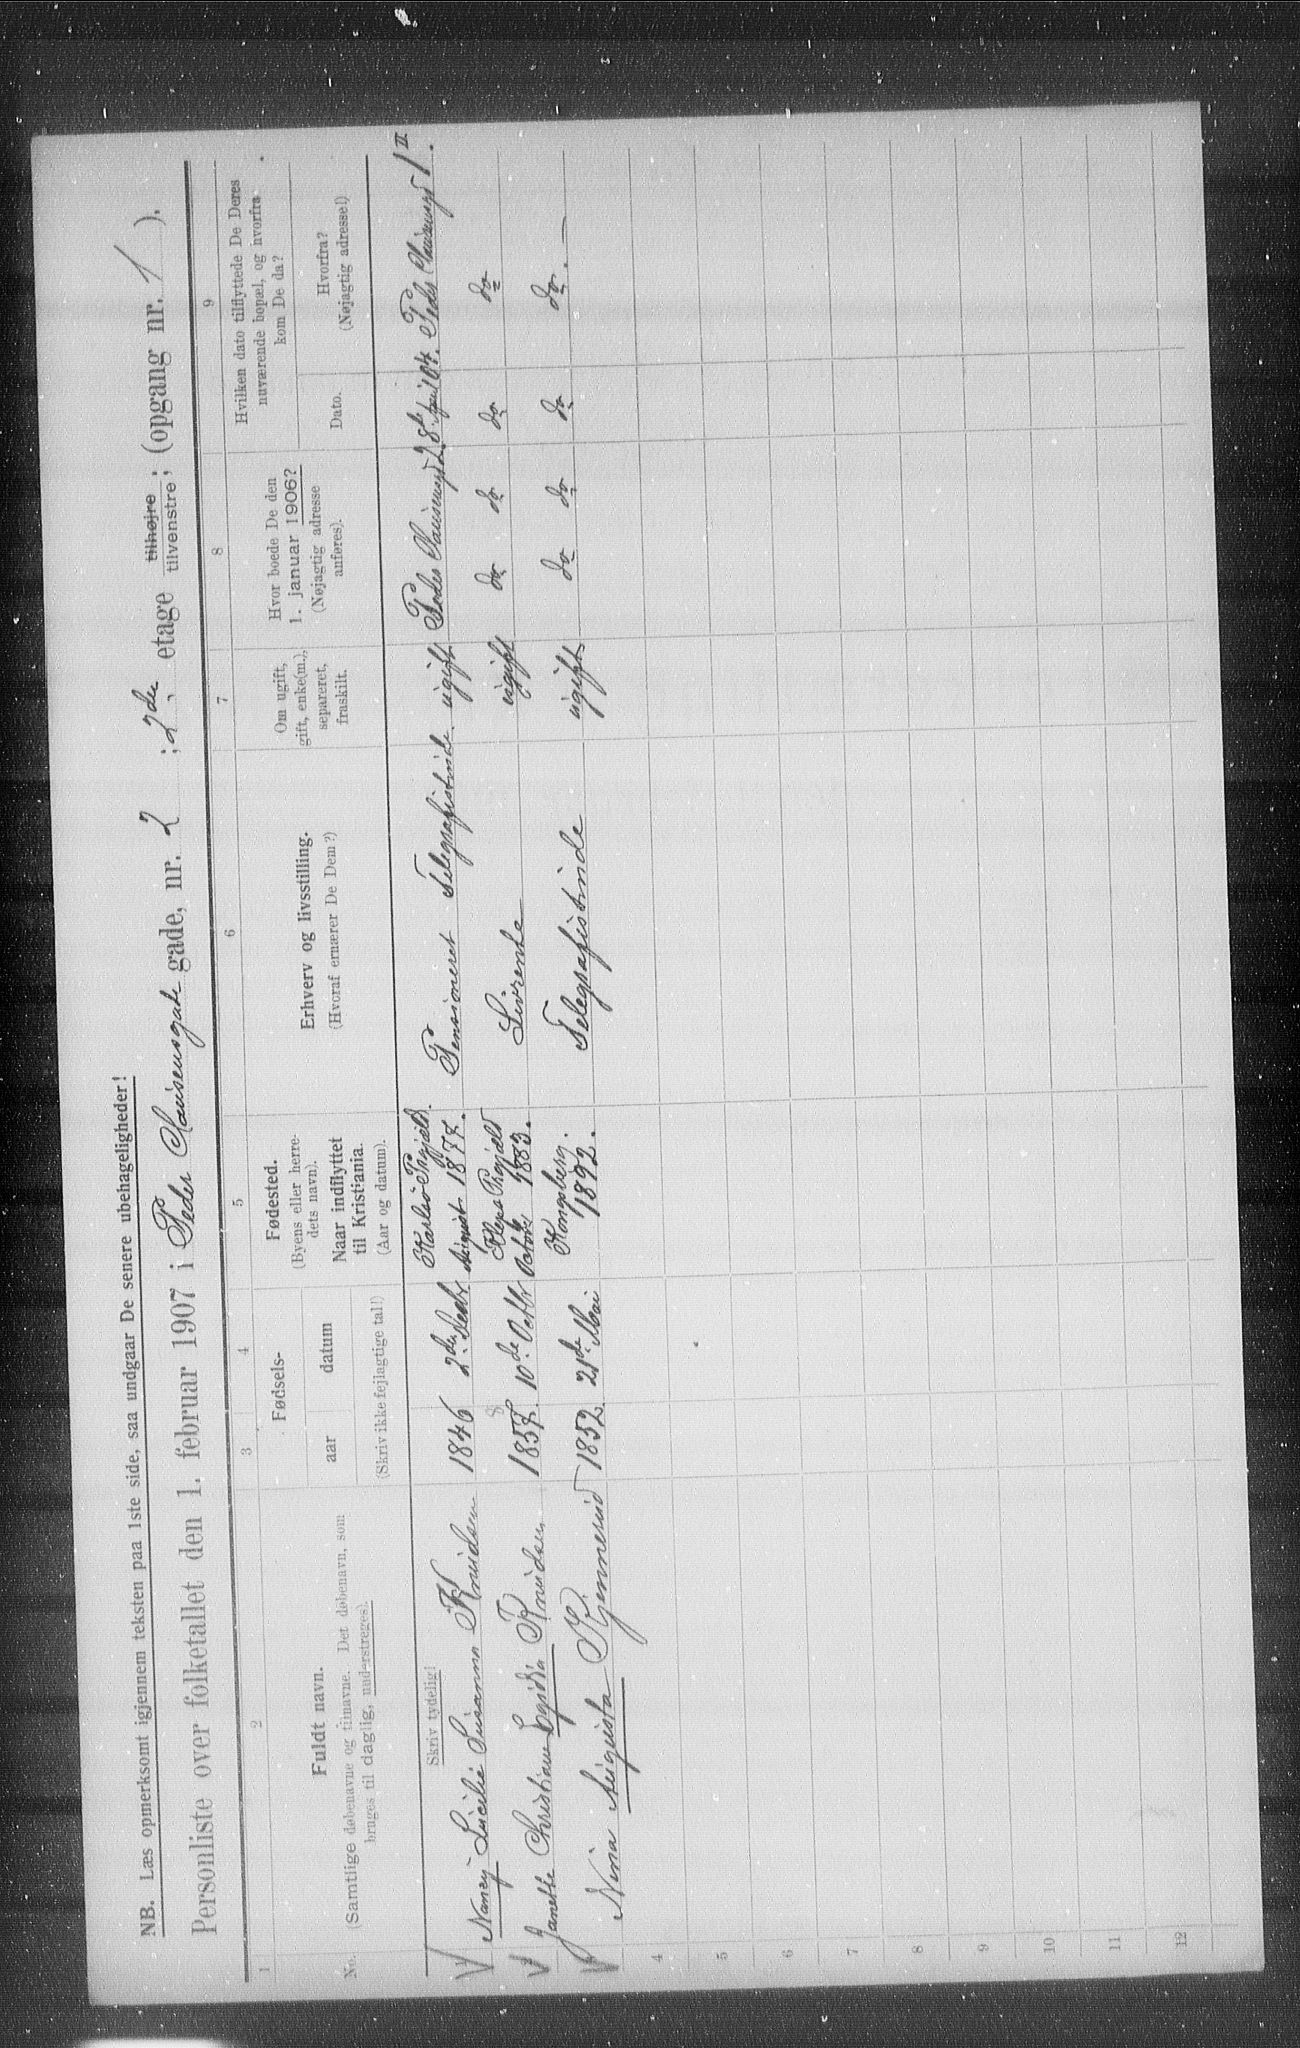 NB. Læs opmerksomt igjennem teksten paa 1ste side, saa undgaar De senere ubehageligheder!
Personliste over folketallet den 1. februar 1907 i Peder Clausensgade gade, nr. 2 ; 2den etage tilhøjre tilvenstre ; (opgang nr. 1 ).
1 2 3 4 5 6 7 8 9
No.
Fuldt navn.
(Samtlige døbenavne og tilnavne. Det døbenavn, som
bruges til daglig, understreges).
Fødsels-
aar datum
(Skriv ikke fejlagtige tal!)
Fødested.
(Byens eller herre-
dets navn).
Naar indflyttet
til Kristiania.
(Aar og datum).
Erhverv og livsstilling.
(Hvoraf ernærer De Dem?)
Om ugift,
gift, enke(m.),
separeret,
fraskilt.
Hvor boede De den
1. januar 1906?
(Nøjagtig adresse
anføres).
Hvilken dato tilflyttede De Deres
nuværende bopæl, og hvorfra
kom De da?
Dato.
Hvorfra?
(Nøjagtig adresse!)
Skriv tydelig!
Nancy Lucilie Susanna Knudsen 1846 2den Decbr August 1877. Pensioneret Telegrafistinde ugift Peder Clausensgd 2. 8de April 04. Peder Clausensgd 1 II.
Janette Christiane Egidia Knudsen 1857. 8 10de Octbr October 1883. Livrente ugift do do do do
Nina Augusta Kjennerud 1852. 21de Mai Kongsberg. 1892. Telegrafistinde ugift do do do do. —
4
5
6
7
8
9
10
11
12